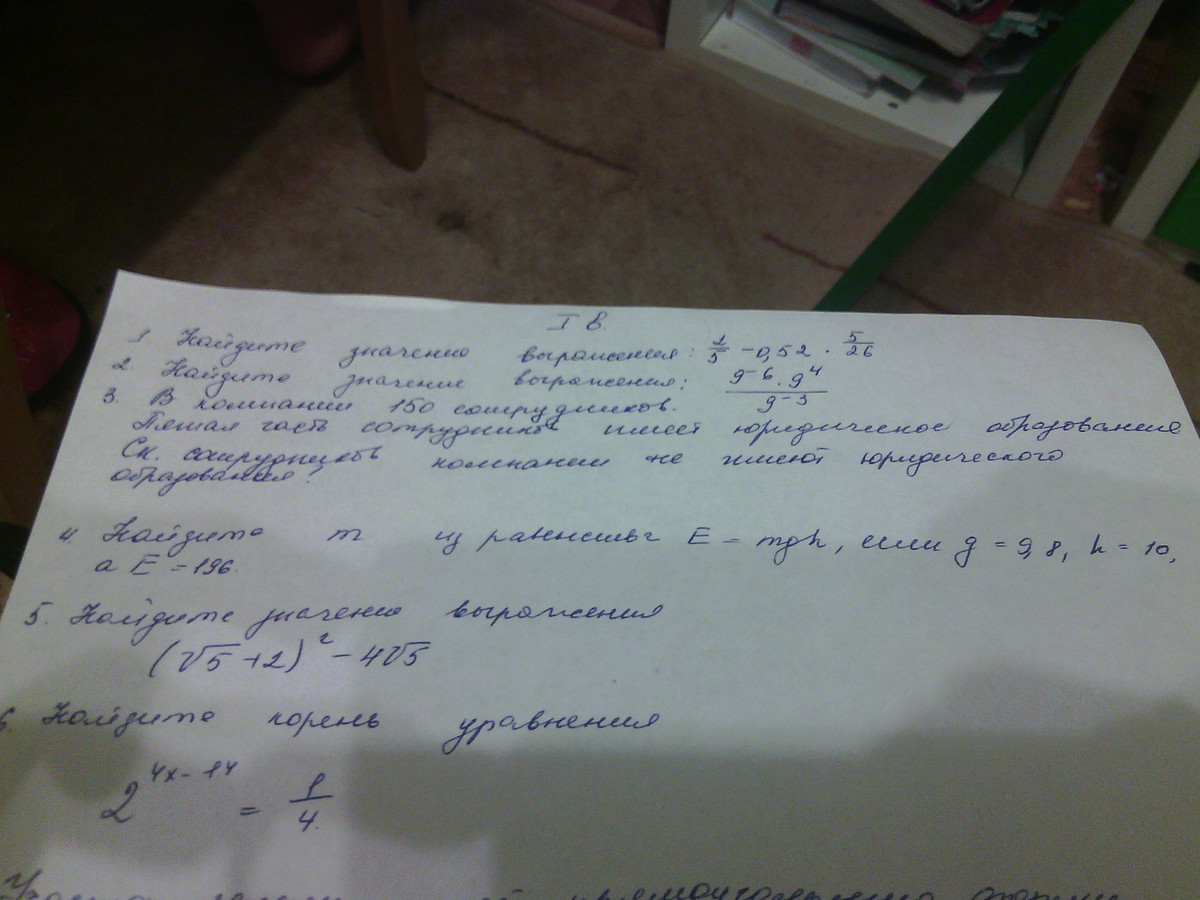 I в.
1 Найдите значение выражения: 1/5 - 0,52 · 5/26
2. Найдите значение выражения: 9^-6 · 9^4 / 9^-3
3. В компании 150 сотрудников.
Пятая часть сотрудников имеет юридическое образование
Ск. сотрудников компании не имеют юридического
образования?
4. Найдите m из равенства E = mgh, если g = 9,8, h = 10,
а E = 196.
5. Найдите значение выражения
(√5 + 2)² - 4√5
6. Найдите корень уравнения
2^4x-14 = 1/4.